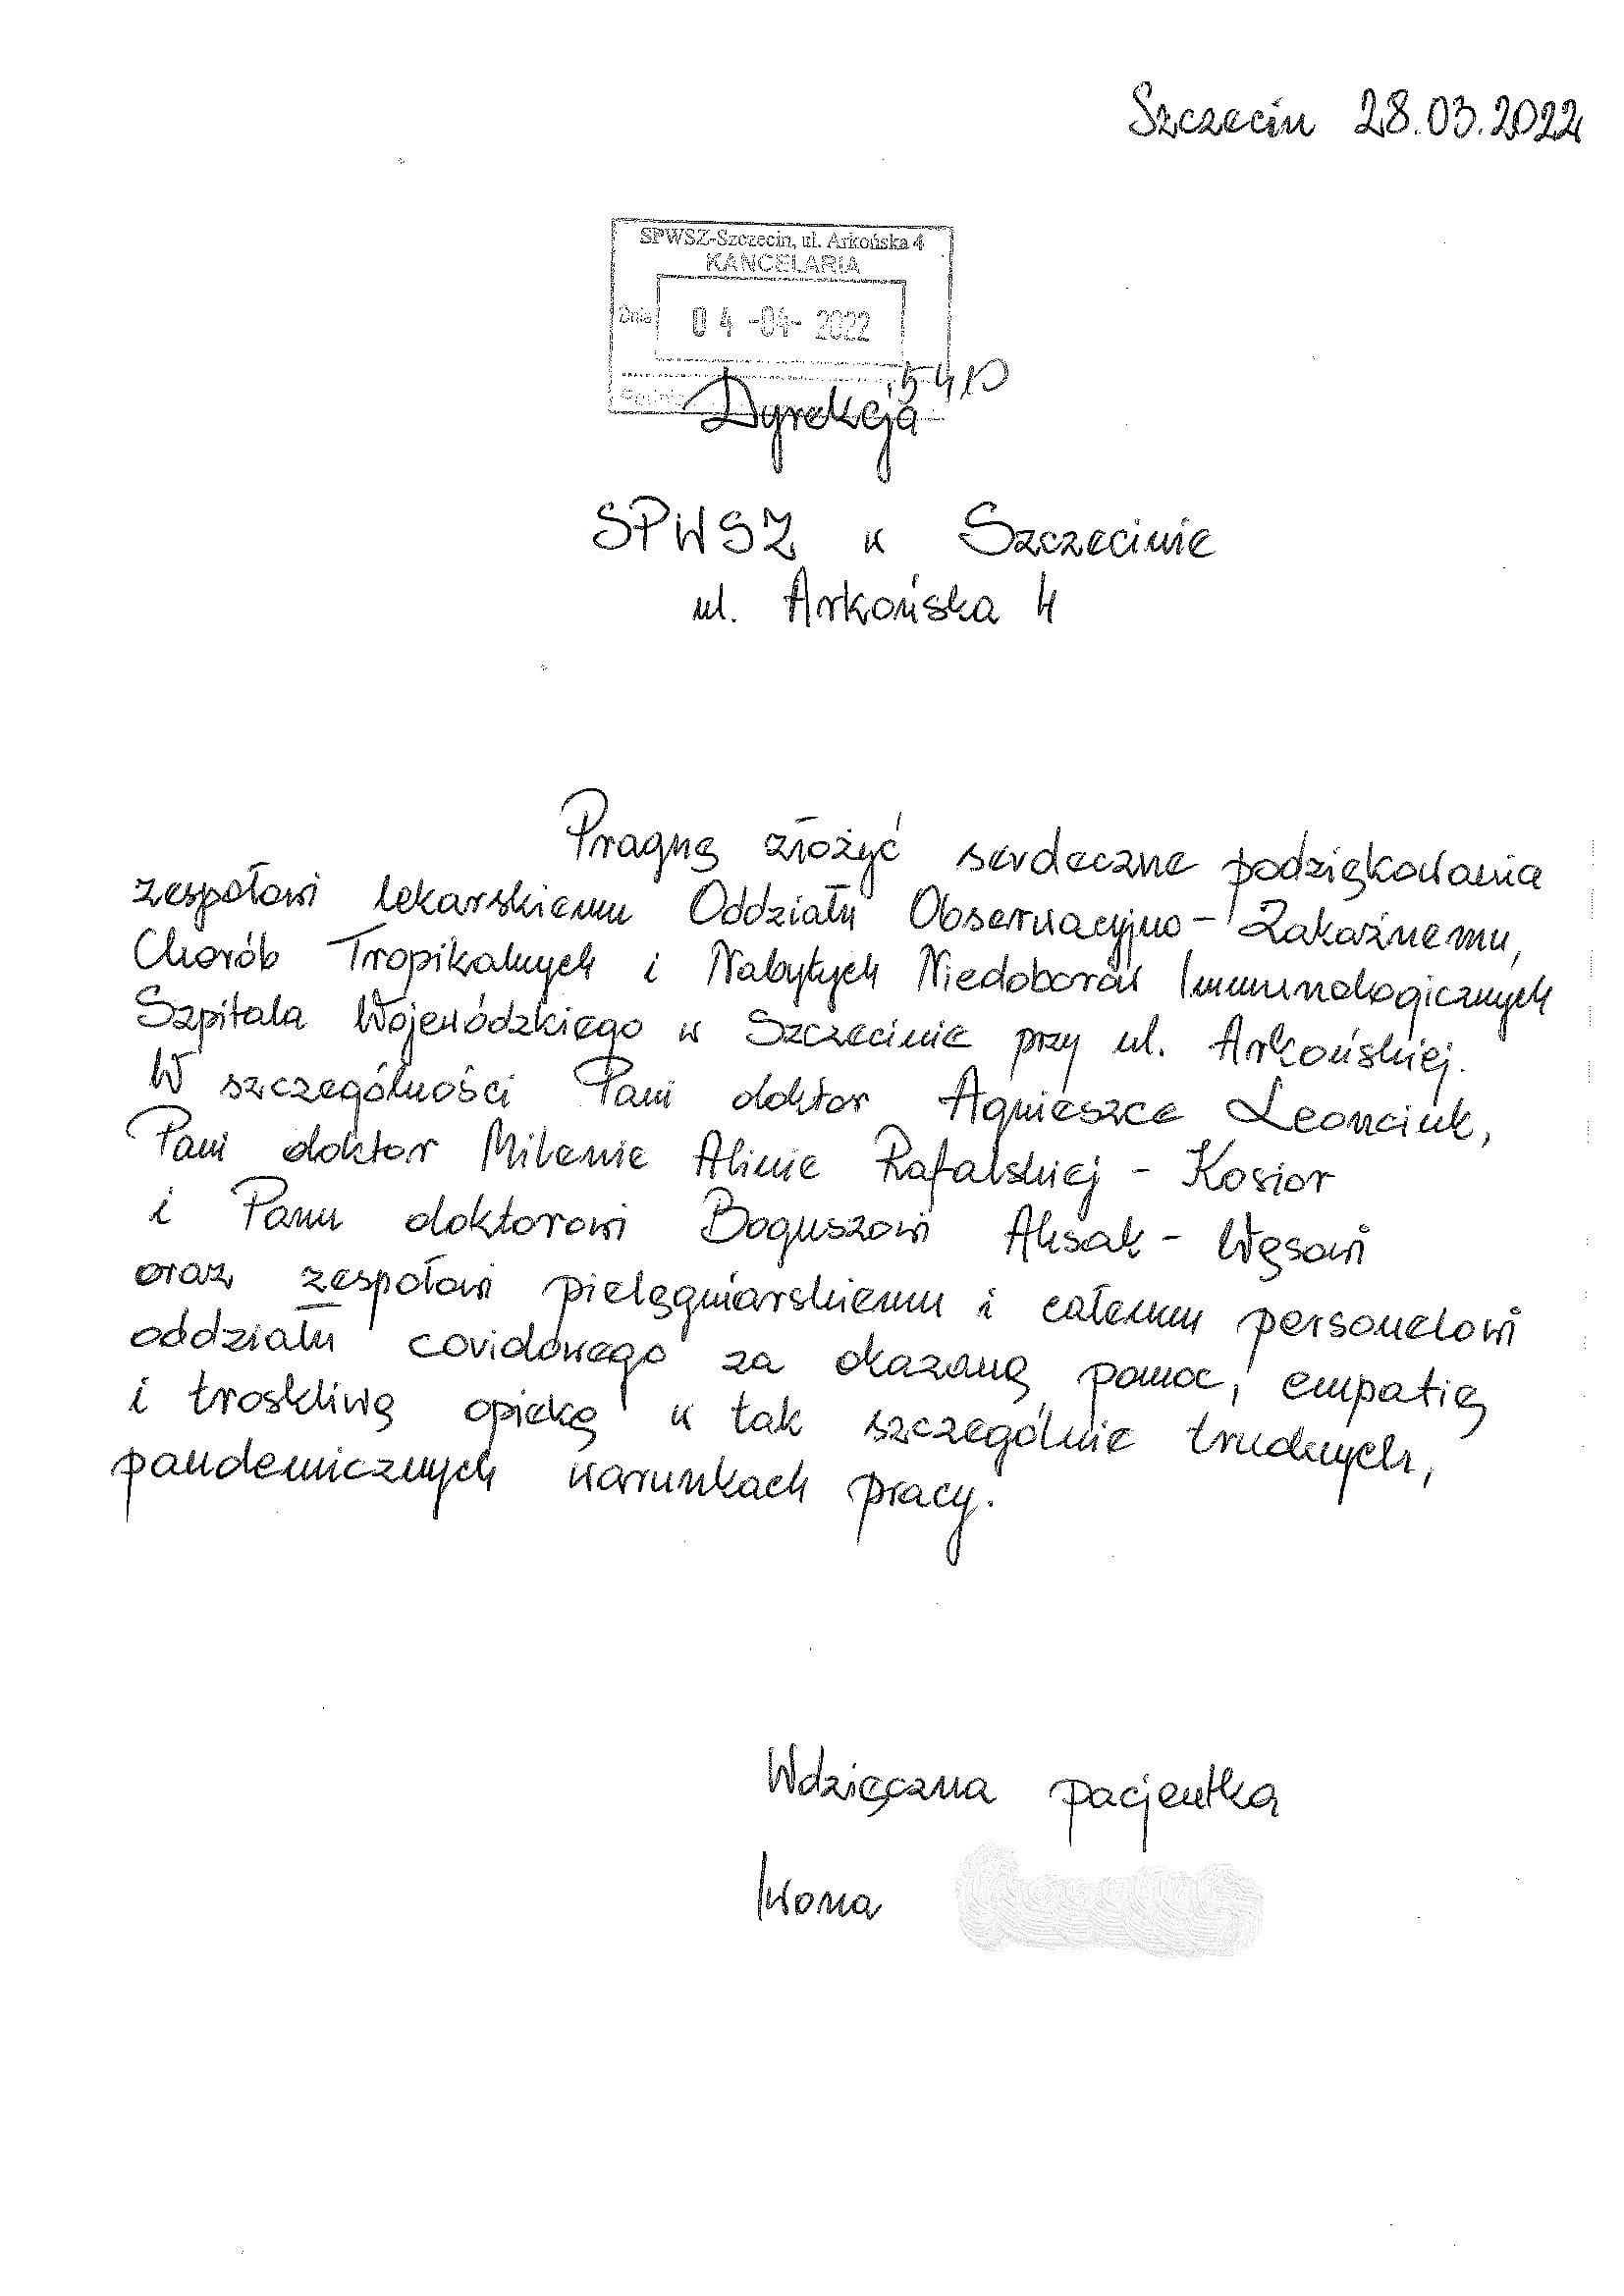 Szczecin 28.03.2022
SPWSZ-Szczecin, ul. Arkońska 4
KANCELARIA
Dnia 04 -04- 2022
Dyrekcja
SPWSZ w Szczecinie
ul. Arkońska 4
Pragnę złożyć serdeczne podziękowania
zespołowi lekarskiemu Oddziału Obserwacyjno-Zakaźnemu,
Chorób Tropikalnych i Nabytych Niedoborów Immunologicznych
Szpitala Wojewódzkiego w Szczecinie przy ul. Arkońskiej.
W szczególności Pani doktor Agnieszce Leonciuk,
Pani doktor Milenie Alinie Rafalskiej - Kosior
i Panu doktorowi Boguszowi Aksak - Wąsowi
oraz zespołowi pielęgniarskiemu i całemu personelowi
oddziału covidowego za okazaną pomoc, empatię
i troskliwą opiekę w tak szczególnie trudnych,
pandemicznych warunkach pracy.
Wdzięczna pacjentka
Iwona